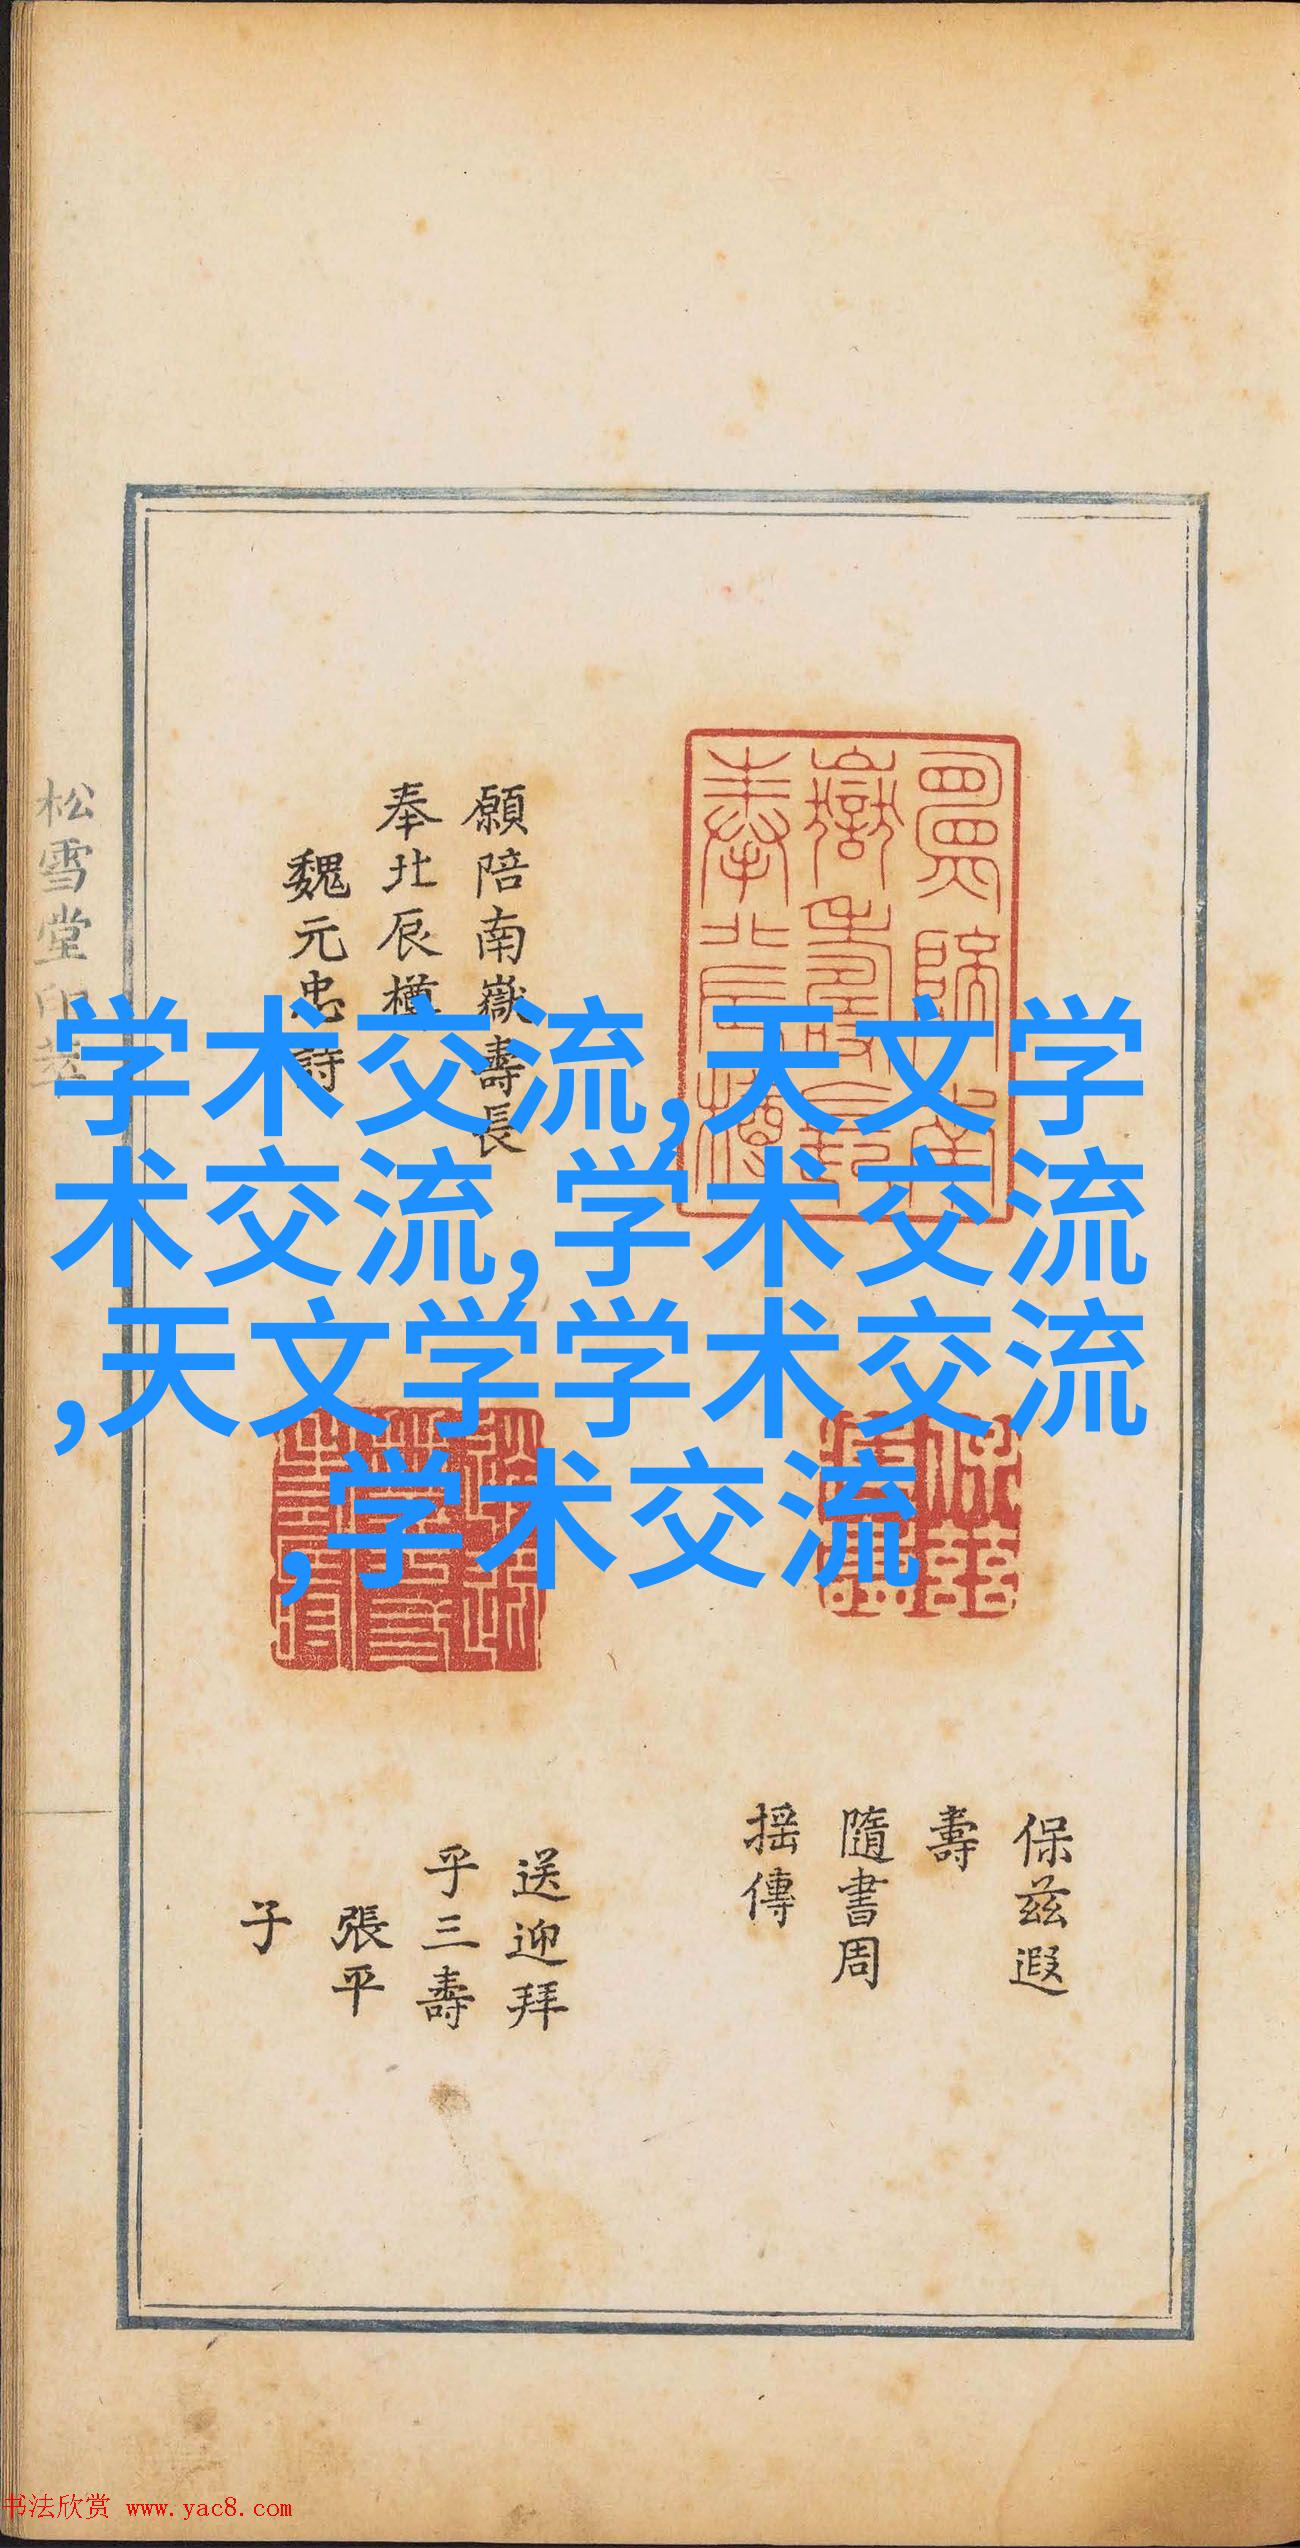 学术交流,天文学
术交流,学术交流
,天文学学术交流
,学术交流
願陪南嶽壽長
奉北辰樽
魏元忠詩
保茲遐
壽
隨書周
搖傳
送迎拜
乎三壽
張平
子
松雪堂印萃
书法欣赏 www.yac8.com